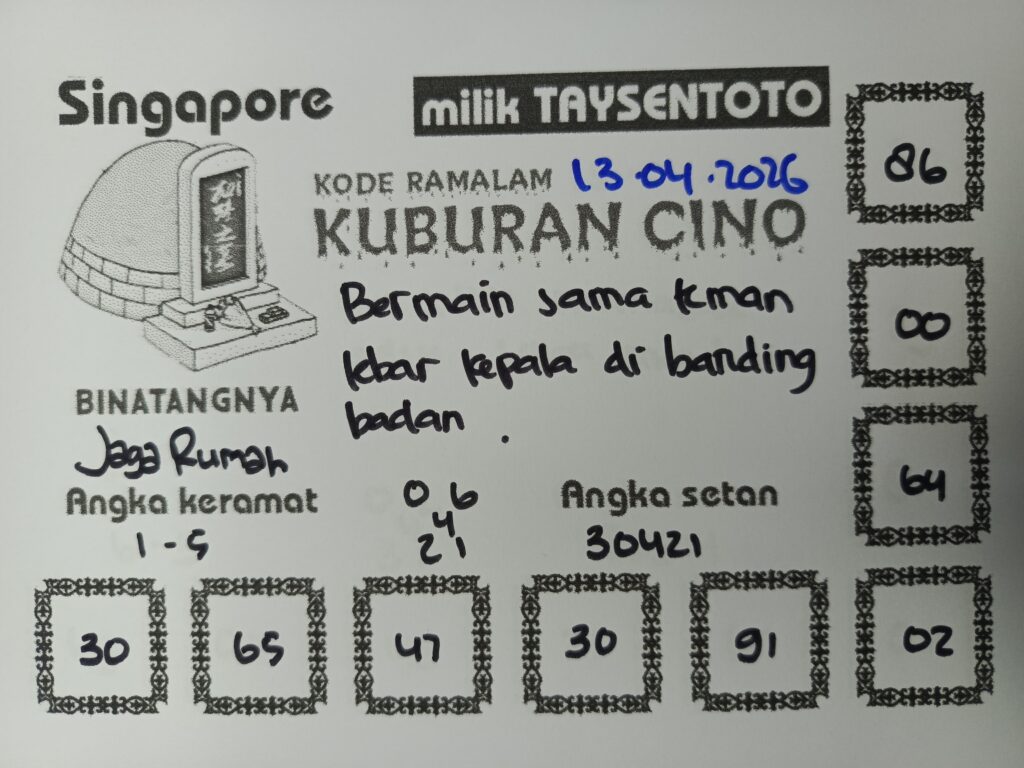 Singapore
milik TAYSENTOTO
KODE RAMALAM 13.04.2026
KUBURAN CINO
Bermain sama teman
lebar kepala di banding
badan.
BINATANGNYA
Jaga Rumah
Angka keramat
1-5
0 6
4
2 1
Angka setan
30421
86
00
64
30
65
47
30
91
02